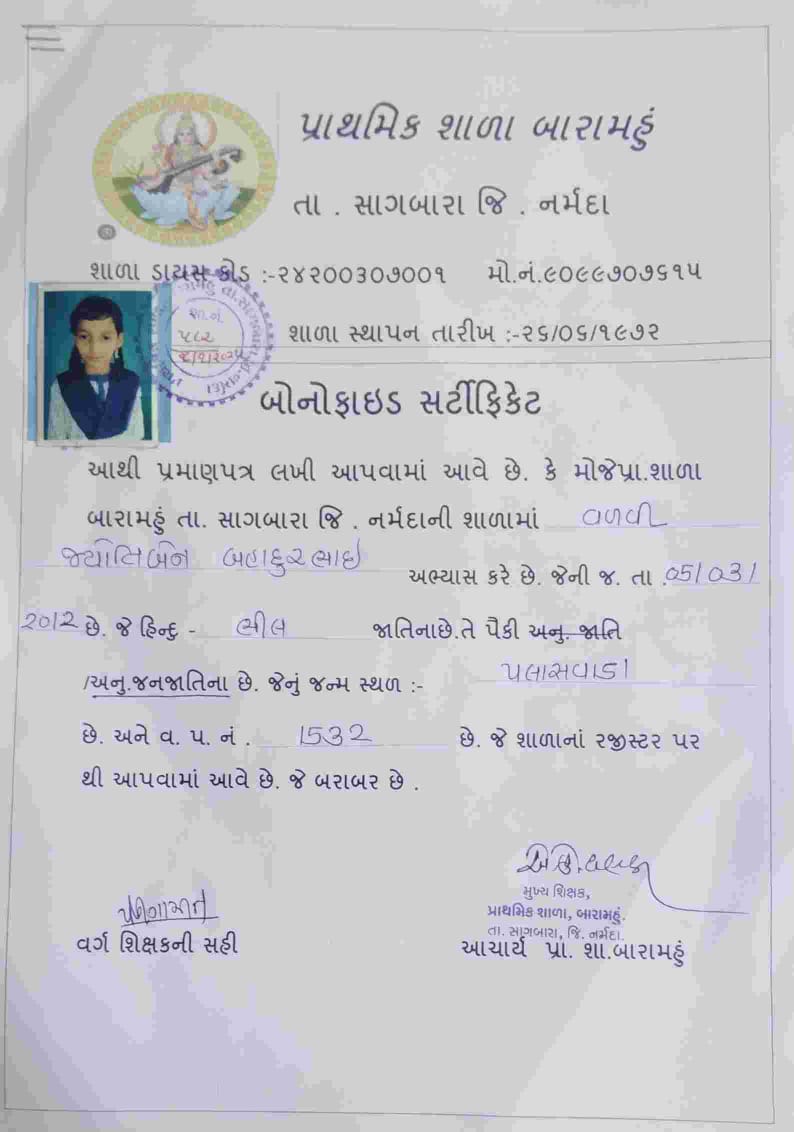 પ્રાથમિક શાળા બારામહું
તા . સાગબારા જિ . નર્મદા
શાળા ડાયસ કોડ :-૨૪૨૦૦૩૦૭૦૦૧ મો.નં.૯૦૯૯૭૦૭૬૧૫
શા.નં.
૫૮૨
શાળા સ્થાપન તારીખ :-૨૬/૦૬/૧૯૭૨
બોનોફાઇડ સર્ટીફિકેટ
આથી પ્રમાણપત્ર લખી આપવામાં આવે છે. કે મોજેપ્રા.શાળા
બારામહું તા. સાગબારા જિ . નર્મદાની શાળામાં વળવી
જ્યોતિબેન બહાદુરભાઇ
અભ્યાસ કરે છે. જેની જ. તા .05/03/
2012 છે. જે હિન્દુ - ભીલ જાતિનાછે.તે પૈકી અનુ. જાતિ
/અનુ.જનજાતિના છે. જેનું જન્મ સ્થળ :- પલાસવાડા
છે. અને વ. પ. નં . 1532 છે. જે શાળાનાં રજીસ્ટર પર
થી આપવામાં આવે છે. જે બરાબર છે .
મુખ્ય શિક્ષક,
પ્રાથમિક શાળા, બારામહું.
તા. સાગબારા, જિ. નર્મદા.
વર્ગ શિક્ષકની સહી આચાર્ય પ્રા. શા.બારામહું